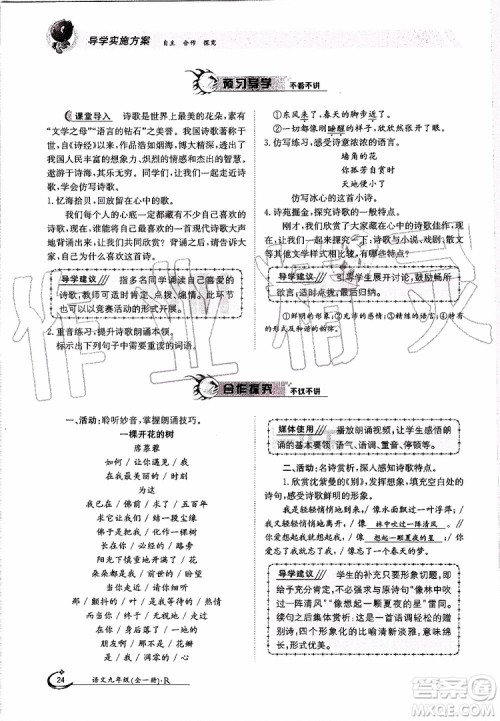 导学实施方案 自主 合作 探究
预习导学 不看不讲
课堂导入 诗歌是世界上最美的花朵,素有
“文学之母”“语言的钻石”之美誉。我国诗歌称于
世,自《诗经》以来,源远流长,博大精深,表现了我
国人民丰富的思想,宽广的胸怀,超人的智慧。
遨游于诗海,其乐无穷。同学们,让我们学会欣
赏,学会仿写诗歌。
1. 忆海拾贝,放飞留在心中的歌。
我们每个人的心底一定都有一首最难忘的
诗歌,今天,让我们将自己心中最喜欢的诗歌大
声地背诵出来,让我们共同欣赏? 背诵之后,请大
家说说自己为什么喜欢这首诗。
导学建议 指多名同学诵读自己喜爱的
诗歌,教师可适时点拨、煽情。此环节
可以竞赛活动的形式开展。
2. 重音练习,提升诗歌朗诵本领。
标示出下列句子中需要重读的词语。
①东风来了,春天的脚步近了。
②一切都像刚睡醒的样子,欣欣然张开了眼。
3. 仿写练习,感受诗意浓浓的语言。
墙角的花
你孤芳自赏时
天地便小了
仿写冰心的这首小诗。
4. 诗苑掘金,探究诗歌的一般特点。
刚才,我们欣赏了大家珍藏在心中的诗歌佳作,也
尝试了仿写诗歌,那么,诗歌与小说、戏剧、散文等
其他文学样式比较,有什么特点呢?
导学建议 引导学生展开讨论,鼓励畅所
欲言,适时点拨,最后归纳。
①鲜明的形象;②充沛的感情;③丰富的想象;④
特殊的形式及韵律等。
合作探究 不议不讲
一、活动:聆听妙音,掌握朗诵技巧。
一棵开花的树
席慕蓉
如何/让你/遇见我
在我/最美丽的/时刻
为这
我已/在佛前/求了/五百年
求佛/让我们/结一段/尘缘
佛/于是/把我/化作/一棵树
长在/你/必经的/路旁
阳光下/慎重地/开满了花
朵朵/都是我/前世的/盼望
当你/走近/请你/细听
那/颤抖的叶/是我/等待的/热情
而当/你/终于/无视地/走过
在你/身后/落了/一地的
朋友啊/那/不是/花瓣
是我/凋零的/心
媒体使用 播放朗诵视频,让学生感悟朗
诵的基本要领:语气、语调、重音、停顿等。
二、活动:名诗赏析,探人感知诗歌特点。
1. 欣赏沈紫曼的《别》,发挥想象,用一句话,续写
诗歌鲜明的形象。
我是轻轻悄悄地到来,像水面飘过一叶浮萍;/又
轻轻悄悄地离开,/像 林中吹过一阵清风 。/
你爱想起我就想起我,/像 想起一颗夏夜的星 。/
你爱忘了我就忘了我,/像忘了一个春天的梦。
导学建议 学生的补充只要形象切题,
即应给予充分肯定。原诗句“像林中吹
过一阵清风”“像想起一颗夏夜的星”雷同。
续诗句应注意与前后诗句内容相关联,
形式优美。
24 语文九年级(全一册)·R
作业精灵